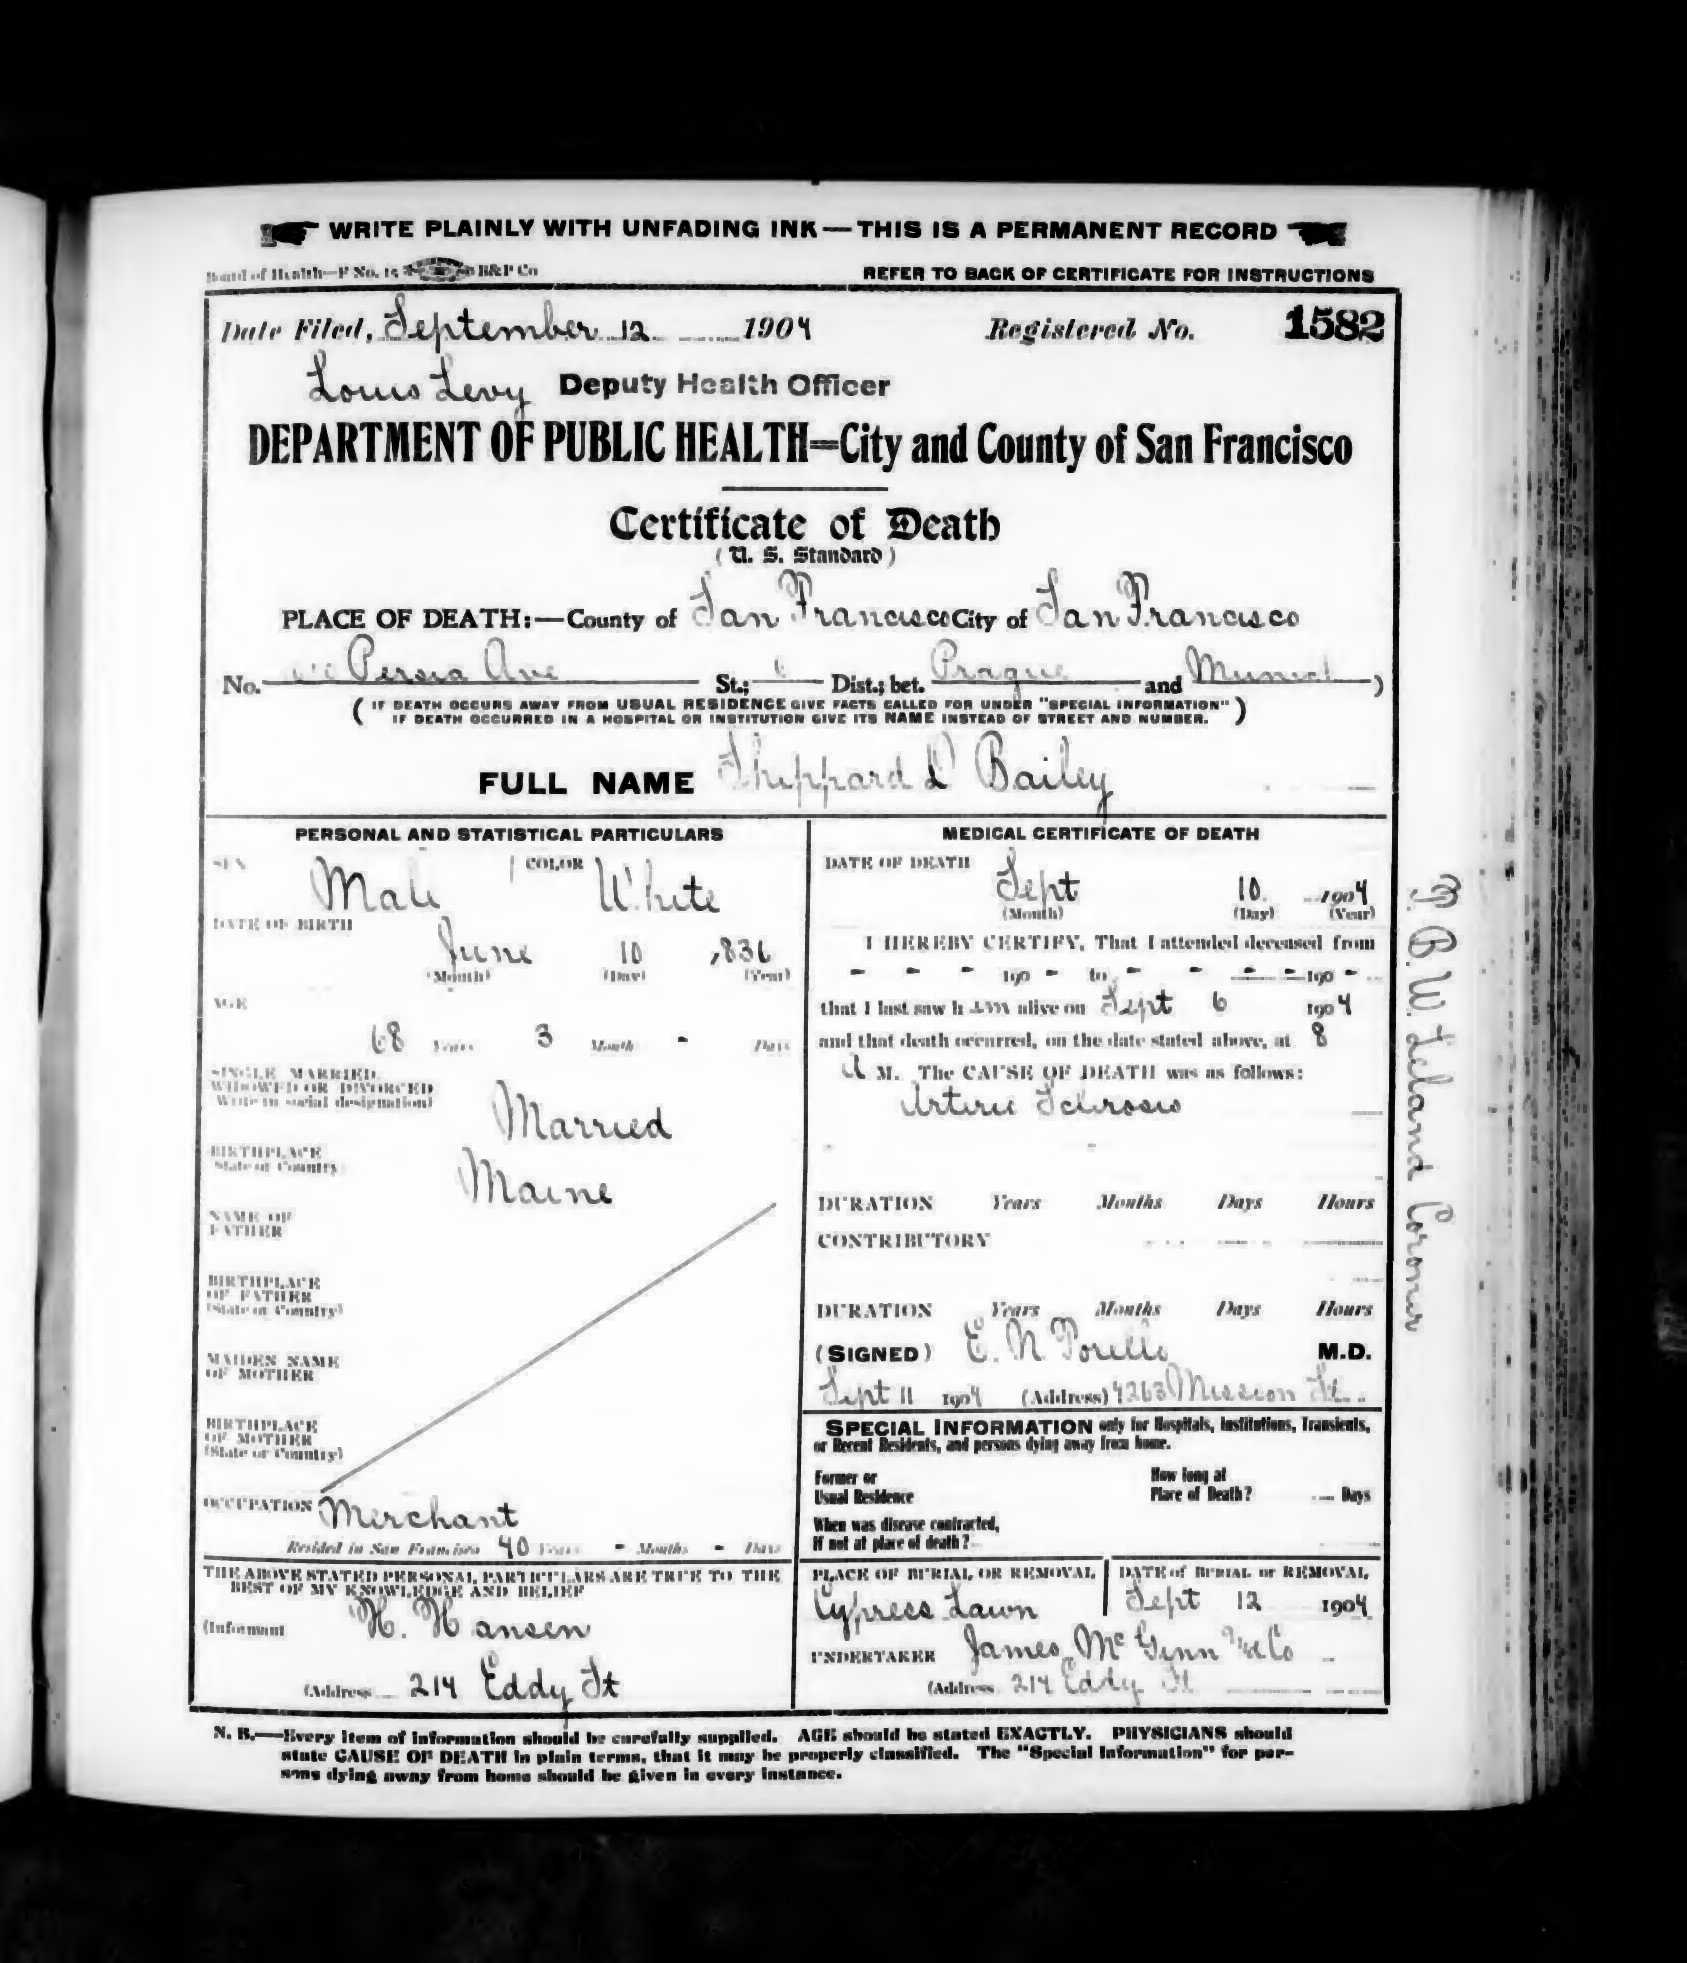 WRITE PLAINLY WITH UNFADING INK — THIS IS A PERMANENT RECORD
Board of Health—F No. 15 B&P Co
REFER TO BACK OF CERTIFICATE FOR INSTRUCTIONS
Date Filed, September 12 1904 Registered No. 1582
Louis Levy Deputy Health Officer
DEPARTMENT OF PUBLIC HEALTH=City and County of San Francisco
Certificate of Death
(U. S. Standard)
PLACE OF DEATH:—County of San Francisco City of San Francisco
No. Persia Ave St.; 6 Dist.; bet. Prague and )
( IF DEATH OCCURS AWAY FROM USUAL RESIDENCE GIVE FACTS CALLED FOR UNDER "SPECIAL INFORMATION"
IF DEATH OCCURRED IN A HOSPITAL OR INSTITUTION GIVE ITS NAME INSTEAD OF STREET AND NUMBER. )
FULL NAME Sheppard L Bailey
PERSONAL AND STATISTICAL PARTICULARS
SEX Male COLOR White
DATE OF BIRTH
June 10 1836
(Month) (Day) (Year)
AGE
68 Years 3 Month - Days
SINGLE MARRIED,
WIDOWED OR DIVORCED
Write in social designation)
Married
BIRTHPLACE
State or Country
Maine
NAME OF
FATHER
BIRTHPLACE
OF FATHER
(State or Country)
MAIDEN NAME
OF MOTHER
BIRTHPLACE
OF MOTHER
(State or Country)
OCCUPATION Merchant
Resided in San Francisco 40 Years - Months - Days
THE ABOVE STATED PERSONAL PARTICULARS ARE TRUE TO THE
BEST OF MY KNOWLEDGE AND BELIEF
(Informant H. Hansen
(Address 214 Eddy St
MEDICAL CERTIFICATE OF DEATH
DATE OF DEATH
Sept 10 1904
(Month) (Day) (Year)
I HEREBY CERTIFY, That I attended deceased from
- - - 190 - to - - - - 190 -
that I last saw him alive on Sept 6 1904
and that death occurred, on the date stated above, at 8
A M. The CAUSE OF DEATH was as follows:
Arterio Sclerosis
DURATION Years Months Days Hours
CONTRIBUTORY
DURATION Years Months Days Hours
(SIGNED) E. N Torello M.D.
Sept 11 1904 (Address) 4263 Mission St.
SPECIAL INFORMATION only for Hospitals, Institutions, Transients,
or Recent Residents, and persons dying away from home.
Former or
Usual Residence
How long at
Place of Death? Days
When was disease contracted,
If not at place of death?
PLACE OF BURIAL OR REMOVAL
Cypress Lawn
DATE of BURIAL or REMOVAL
Sept 12 1904
UNDERTAKER James McGinn & Co
(Address 214 Eddy St
T. B. W. Leland Coroner
N. B.—Every item of information should be carefully supplied. AGE should be stated EXACTLY. PHYSICIANS should
state CAUSE OF DEATH in plain terms, that it may be properly classified. The "Special Information" for per-
sons dying away from home should be given in every instance.